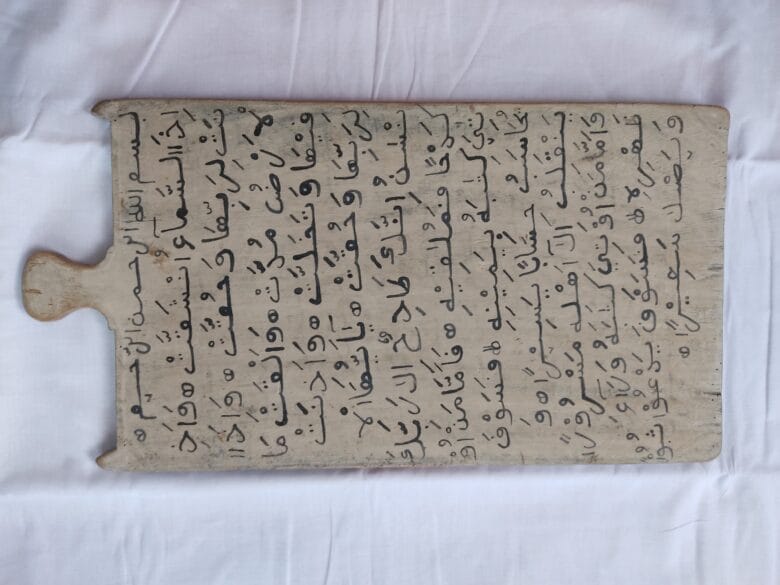 بسم الله الرحمن الرحيم ه
اذا السماء انشقت ه واذ
نت لربها وحقت ه واذا ا
لارض مدت ه والقت ما
فيها وتخلت ه واذنت
لربها وحقت ه يايها الا
نسن انك كادح الى ربك
كدحا فملقيه ه فاما من او
تي كتبه بيمينه ه فسوف
يحاسب حسابا يسيرا ه و
ينقلب الى اهله مسرورا
واما من اوتي كتبه وراء
ظهره ه فسوف يدعوا ثبورا
ويصلى سعيرا ه